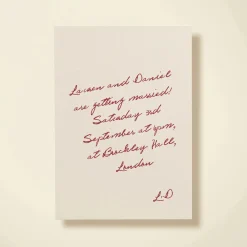 Lauren and Daniel
are getting married!
Saturday 3rd
September at 4pm,
at Brockley Hall,
London
L+D